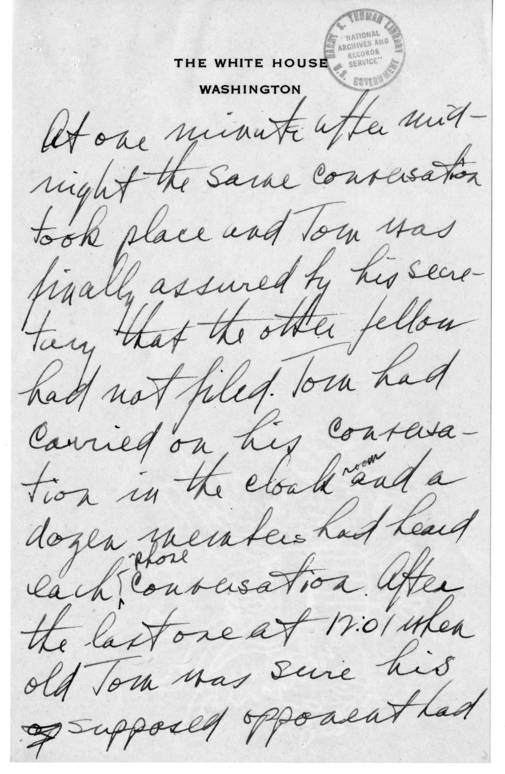 HARRY S. TRUMAN LIBRARY
"NATIONAL
ARCHIVES AND
RECORDS
SERVICE"
U.S. GOVERNMENT
THE WHITE HOUSE
WASHINGTON
At one minute after mid-
night the same conversation
took place and Tom was
finally assured by his secre-
tary that the other fellow
had not filed. Tom had
carried on his conversa-
tion in the cloak room and a
dozen members had heard
each phone conversation. After
the last one at 12:01 when
old Tom was sure his
supposed opponent had